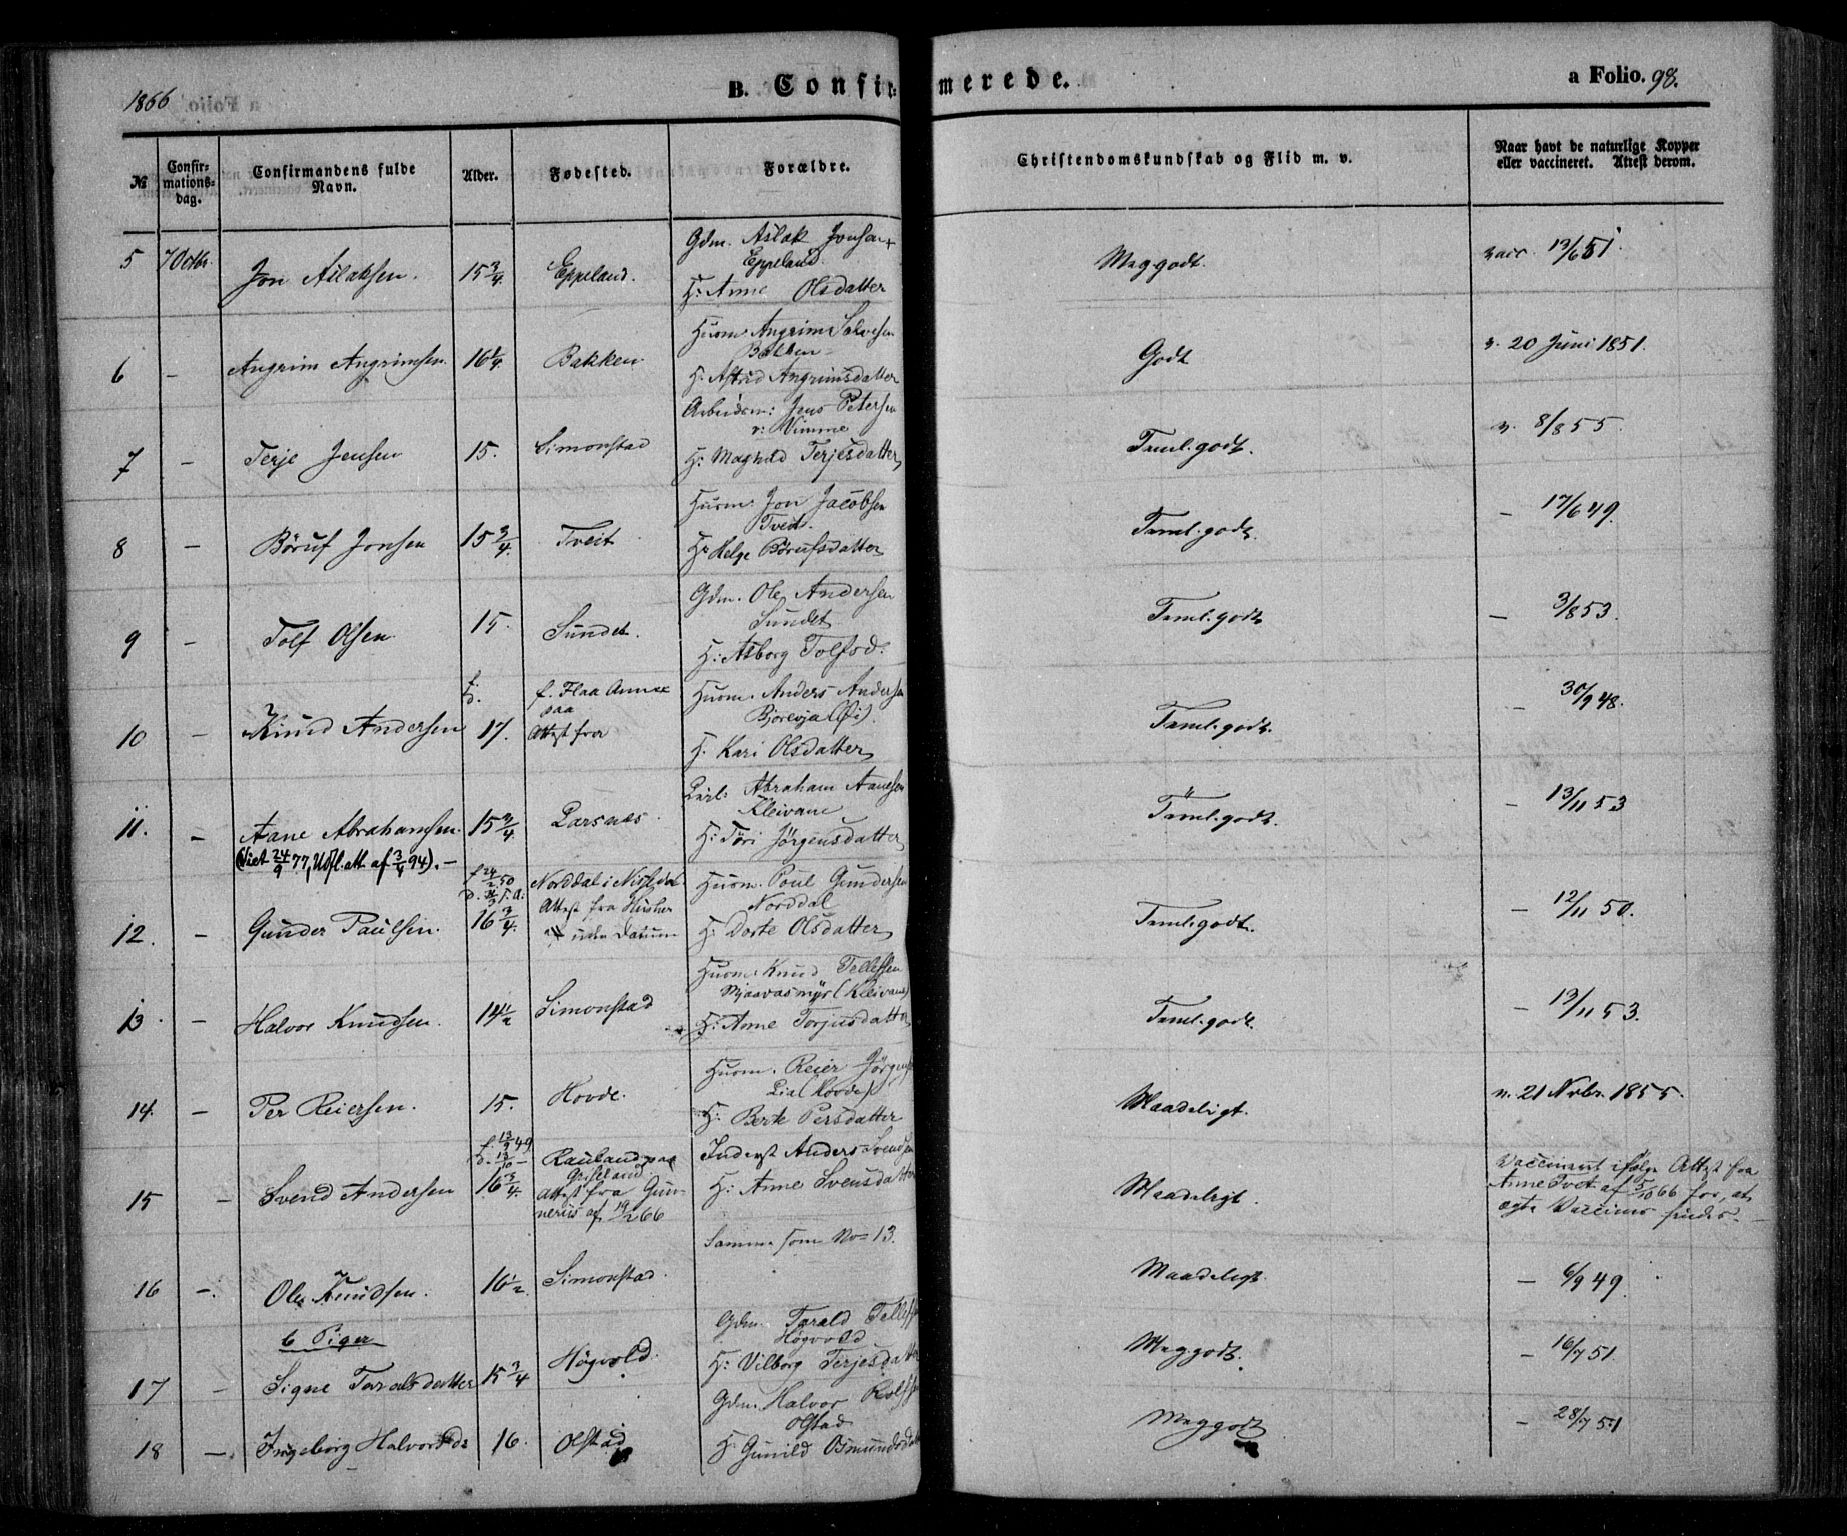 1866
B. Confirmerede.
a Folio. 98.
№
Confirmationsdag.
Confirmandens fulde Navn.
Alder.
Fødested.
Forældre.
Christendomskundskab og Flid m. v.
Naar havt de naturlige Kopper eller vaccineret. Attest derom.
5 7 Octbr. Jon Aslaksen. 15 3/4. Eppeland. Gdm. Aslak Jonsen
Eppeland.
H: Anne Olsdatter
Meg godt. vacc. 13/6 51.
6 – Angrim Angrimsen 16 1/4. Bakken Huusm. Angrim Salvesen
Bakken
H. Astrid Angrimsdatter
Godt v. 20 Juni 1851.
7 – Terje Jensen 15. Simonstad Arbeidsm: Jens Petersen
v: Nimme
H: Maghild Terjesdatter
Taml. godt. v. 8/8 55.
8 – Børuf Jonsen 15 3/4. Tveit. Huusm. Jon Jacobsen
Tveit.
H: Helge Børufsdatter
Taml. godt. – 17/6 49.
9 – Tolf Olsen 15. Sundet. Gdm. Ole Andersen
Sundet
H: Asborg Tolfsd.
Taml. godt – 3/8 53.
f.
D.
f. Flaa Annex
paa
10 – Knud Andersen 17. Attest fra Huusm. Anders Andersen
Bjorevja (Øi).
H. Kari Olsdatter
Taml. godt. – 30/9 48.
11. – Aane Abrahamsen 15 3/4. Larsnes. Leil: Abraham Aanesen
Kleivane
(Viet 24/9 77, Udfl. att. af 3/4 94). –
H: Tøri Jørgensdatter
Taml. godt. – 13/11 53
f 24/2 50
Norddal i Nissedal
Attest fra Hirsher
uden Datum
12. – Gunder Paulsen. 16 3/4. Huusm. Poul Gundersen
Norddal
H. Dorte Olsdatter
Taml. godt. – 12/11 50.
13. – Halvor Knudsen. 14 1/2 Simonstad Huusm. Knud Tellefsen
Mjaavasmyr (Kleivane)
H: Anne Torjusdatter
Taml. godt. – 13/11 53.
14. – Per Reiersen. 15. Hovde. Huusm. Reier Jørgens
Lia (Hovde)
H: Berte Persdatter
Maadeligt. v. 21 Novbr. 1855.
f. 13/9 49
D. 13/10 –
15 – Svend Andersen 16 3/4. Rauland paa
Grifeland.
Attest fra Gun-
nerius af 19/2 66
Inderst Anders Svendsen
H: Anne Svensdatter
Maadeligt. Vaccineret ifølge Attest fra
Anne Tvet af 5/10 66 for, at
ægte Vacciner findes. –
16 –. Ole Knudsen. 16 1/2. Simonstad. Samme som No 13.
Maadeligt. – 6/9 49.
b Piger
17 – Signe Taraldsdatter 15 3/4 Høgvold. Gdm. Tarald Tellefs
Høgvold
H: Vilborg Terjesdatter
Meg godt. – 16/7 51.
18 –. Ingeborg Halvorsd. 16. Olstad Gdm. Halvor Rolfsen
Olstad
H. Gunild Osmundsdatt
Meg godt – 28/7 51